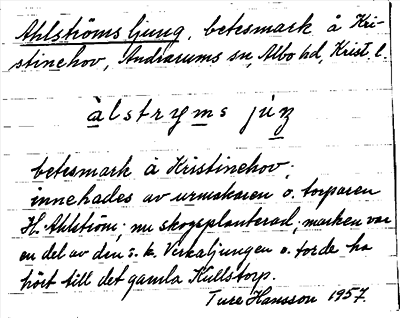 Ahlströms ljung, betesmark å Kri-
stinehov, Andrarums sn, Albo hd, Krist. l.
àlstryms jùŋ
betesmark å Kristinehov;
innehades av urmakaren o. torparen
H. Ahlström; nu skogsplanterad; marken var
en del av den s.k. Verkaljungen o. torde ha
hört till det gamla Kullstorp.
Ture Hansson 1957.